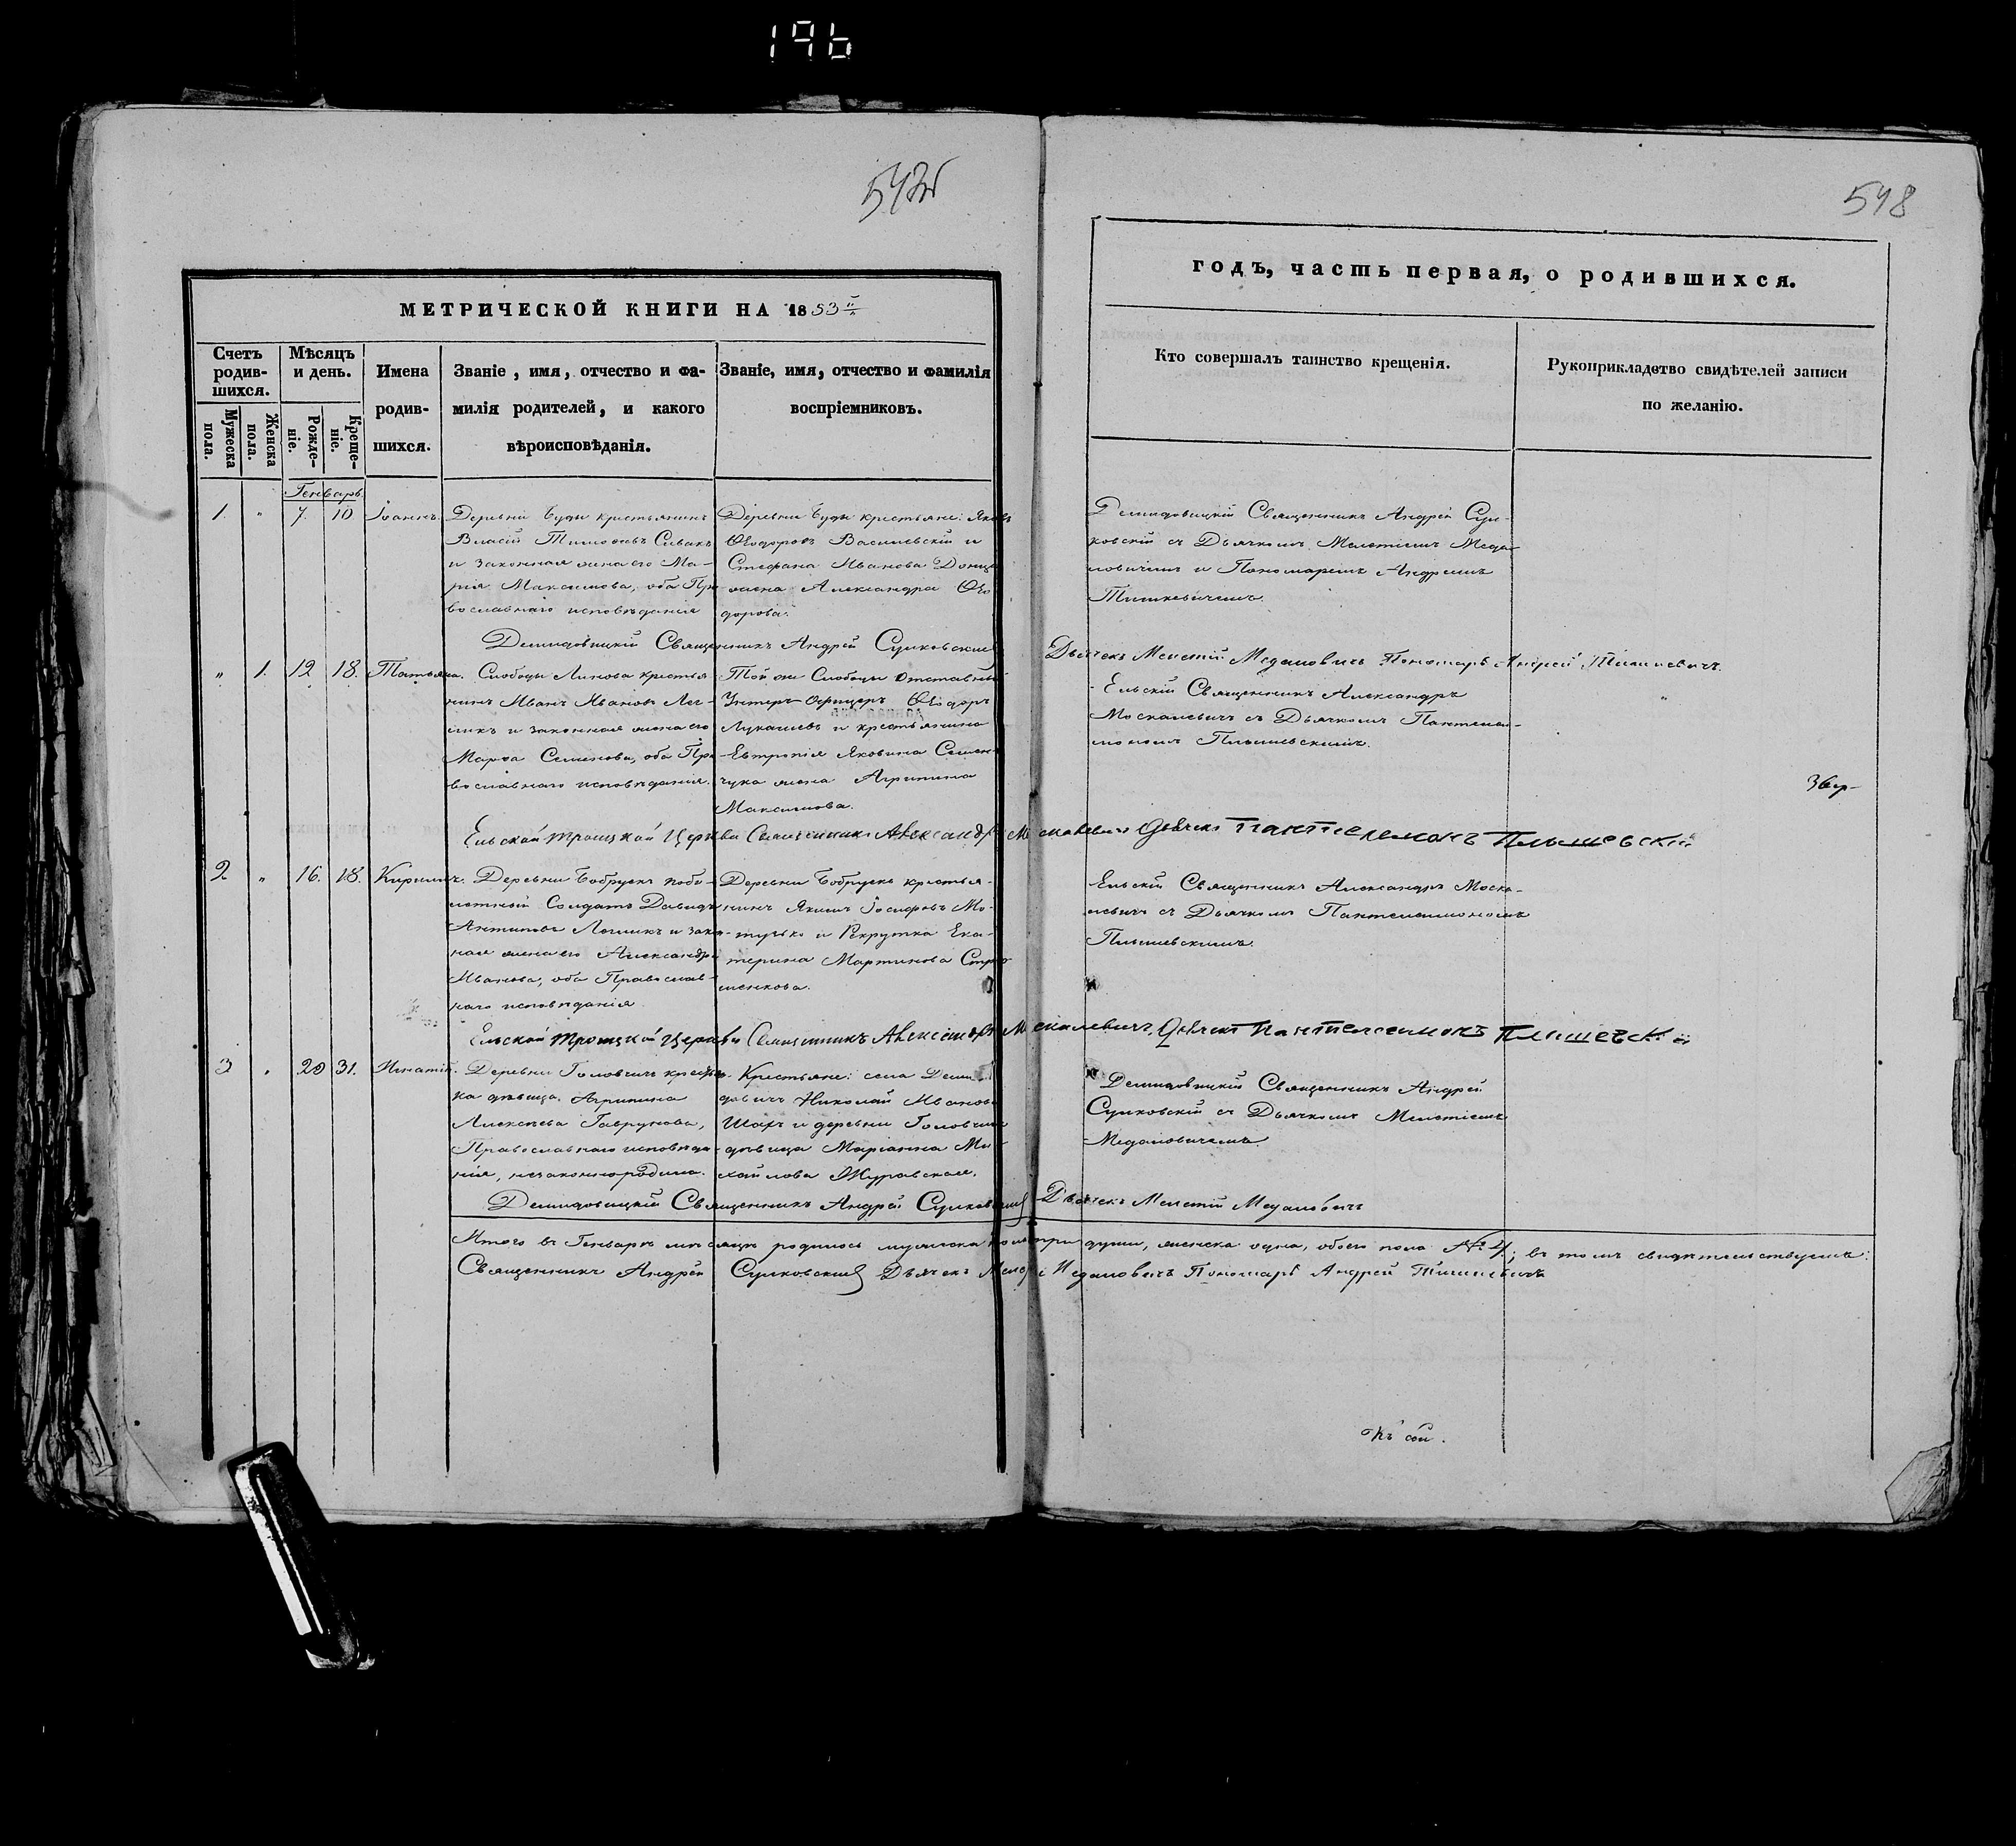 196
548
МЕТРИЧЕСКОЙ КНИГИ НА 1853й
годъ, часть первая, о родившихся.
Счетъ родив-шихся.
Мужеска пола.
Женска пола.
Мѣсяцъ и день.
Рожде-ніе.
Креще-ніе.
Имена родив-шихся.
Званіе, имя, отчество и фа-
милія родителей, и какого
вѣроисповѣданія.
Званіе, имя, отчество и фамилія
воспріемниковъ.
Кто совершалъ таинство крещенія.
Рукоприкладство свидѣтелей записи
по желанію.
Генварь
1. " 7. 10 Іоаннъ.
Деревни Буды крестьянинъ
Власій Тимофеевъ Сивакъ
и законная жена его Ма-
рія Максимова, оба Пра-
вославнаго исповѣданія
Деревни Буды крестьяне: Яковъ
Ѳеодоровъ Василевскій и
Стефана Иванова
жена Александра Ѳео-
дорова.
Демидовицкій Священникъ Андрей Сул-
ковскій съ Дьячкомъ Мелетіемъ
и Пономаремъ Андреемъ
Демидовицкій Священникъ Андрей Сулковскій Дьячекъ Мелетій Пономарь Андрей
" 1. 12 18. Татьяна.
Слободы крестья-
нинъ Иванъ Ивановъ
и законная жена его
Марѳа Семенова, оба Пра-
вославнаго исповѣданія.
Той же Слободы отставный
Унтеръ-Офицеръ Ѳеодоръ
Лукашевъ и крестьянина
Евтропія Яковина Семен-
чука жена Агрипина
Максимова.
Ельскій Священникъ Александръ
Москалевичъ съ Дьячкомъ Пантелей-
мономъ Плышевскимъ.
Ельской Троицкой Церкви Священникъ Александръ Москалевичъ Дьячекъ Пантелемонъ Плышевскій
2 " 16. 18. Кириллъ.
Деревни Бобруекъ
Солдатъ Давидъ
Антиповъ и закон-
ная жена его Александра
Иванова, оба Православ-
наго исповѣданія
Деревни Бобруекъ крестья-
нинъ Якимъ Іосифовъ Мо-
и Рекрутка Ека-
терина Мартинова
Ельскій Священникъ Александръ Моска-
левичъ съ Дьячкомъ Пантелеимономъ
Плышевскимъ.
Ельской Троицкой Церкви Священникъ Александръ Москалевичъ Дьячекъ Пантелеимонъ Плышевскій
3 " 20 31. Игнатій.
Деревни Головчицъ крестьян-
ка дѣвица Агрипина
Алексѣева Гаврукова,
Православнаго исповѣда-
нія, незаконнорбдила.
Крестьяне: села Деми-
довичъ Николай Ивановъ
и деревни Головчицъ
дѣвица Маріанна Ми-
хайлова Журавская.
Демидовицкій Священникъ Андрей
Сулковскій съ Дьячкомъ Мелетіемъ
Демидовицкій Священникъ Андрей Сулковскій Дьячекъ Мелетій
Итого въ Генварѣ мѣсяцѣ родилось мужеска пола три души, женска одна, обоего пола №4; въ томъ свидѣтельствуемъ:
Священникъ Андрей Сулковскій Дьячекъ Пономарь Андрей